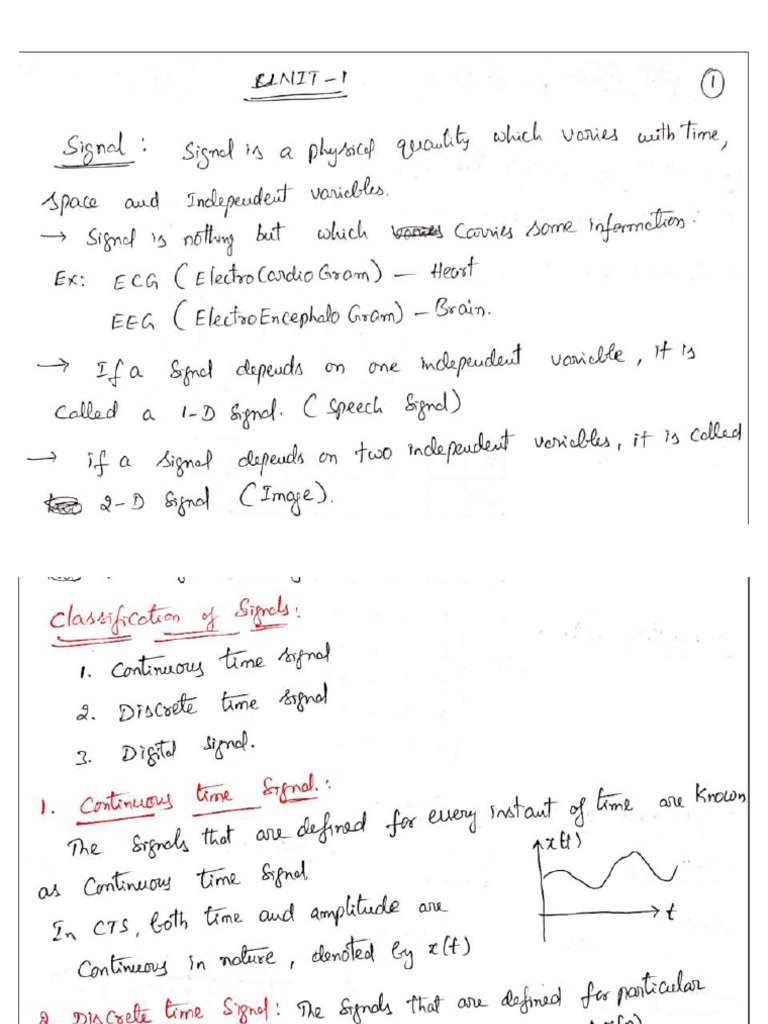 UNIT-1
1
Signal: Signal is a physical quantity which varies with time,
space and Independent variables.
→ Signal is nothing but which varies Carries some information.
Ex: ECG (ElectroCardioGram) - Heart
EEG (ElectroEncephaloGram) - Brain.
→ If a signal depends on one independent variable, it is
called a 1-D signal. (Speech Signal)
→ if a signal depends on two independent variables, it is called
2-D signal (Image).
Classification of Signals:
1. Continuous time signal
2. Discrete time signal
3. Digital signal.
1. Continuous time Signal.:
The signals that are defined for every instant of time are known
as Continuous time signal
x(t)
In CTS, both time and amplitude are
t
Continuous in nature, denoted by x(t)
2. Discrete time Signal: The signals that are defined for particular
x(n)